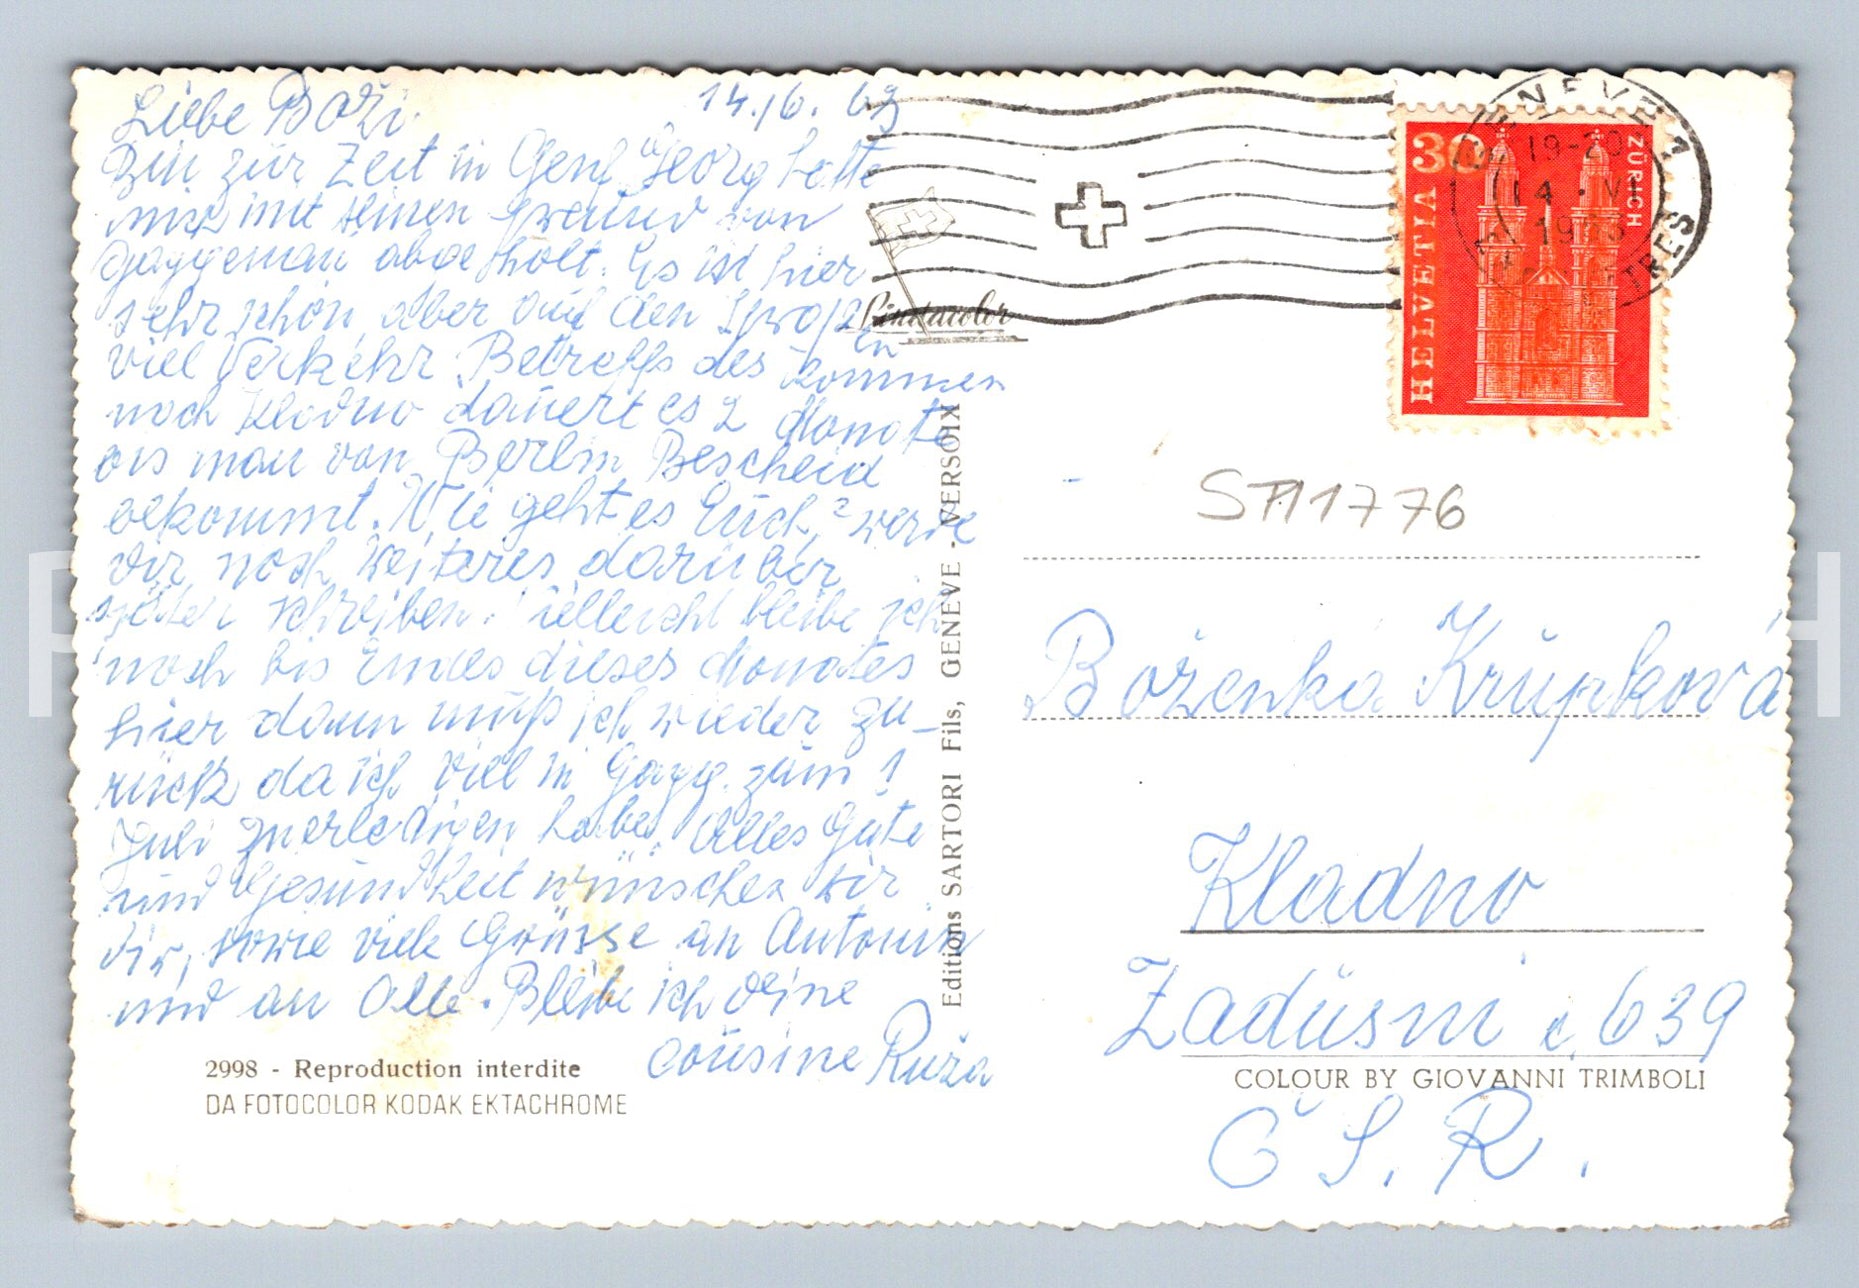 Liebe Boži.
14./6. 63
Bin zür Zeit in Genf Georg hatte
mich mit seinen Freund von
Gaggenau abgeholt. Es ist hier
sehr schön aber auf den Stroßen
viel Verkehr. Betreffs des kommen
noch Kladno daüert es 2 Monate
bis man von Berlin Bescheid
bekommt. Wie geht es Euch? werde
dir noch weiteres darüber
später schreiben. Vielleicht bleibe ich
noch bis Endes dieses Monates
hier dann muß ich wieder zu-
rück da ich viel in Gagg. zum 1
Juli zuerledigen habe. Alles Gute
und Gesundheit wünschen wir
dir, sowie viele Grüsse an Antonin
und an Alle. Bleibe ich deine
Coüsine Ruža
2998 - Reproduction interdite
DA FOTOCOLOR KODAK EKTACHROME
Editions SARTORI Fils, GENEVE - VERSOIX
GENEVE 1
19-20
14 · VI
1963
30
HELVETIA
ZÜRICH
ST11776
Boženka Krüpková
Kladno
Zadüsni č. 639
COLOUR BY GIOVANNI TRIMBOLI
Č S. R.